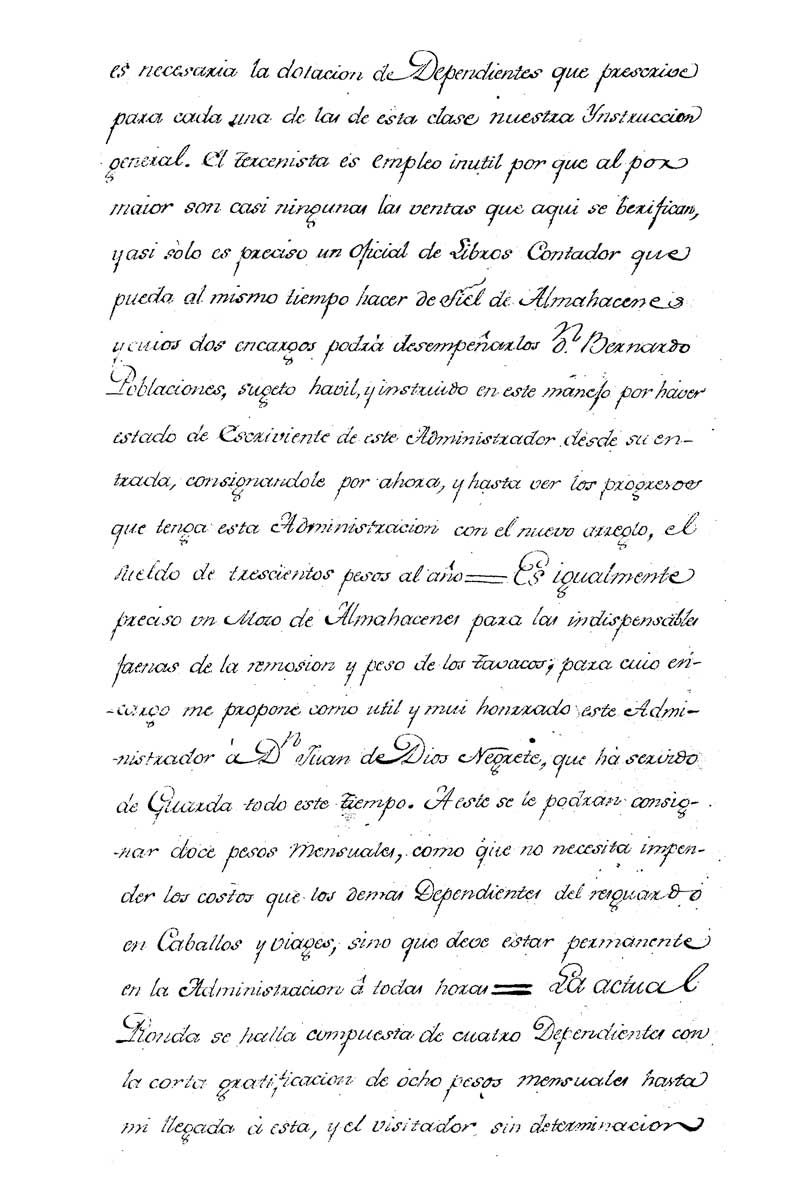 es necesaria la dotacion de Dependientes que prescrive
para cada una de las de esta clase nuestra Ynstruccion
general. El tercenista es empleo inutil por que al por
maior son casi ningunas las ventas que aqui se berifican,
y asi sólo es preciso un Oficial de Libros Contador que
pueda al mismo tiempo hacer de Fiel de Almahacenes
y cuios dos encargos podrá desempeñarlos Dn. Bernardo
Poblaciones, sugeto havil, y instruido en este manejo por haver
estado de Escriviente de este Administrador desde su en-
trada, consignandole por ahora, y hasta ver los progresos
que tenga esta Administracion con el nuevo arreglo, el
sueldo de trescientos pesos al año = Es igualmente
preciso un Mozo de Almahacenes para las indispensables
faenas de la remosion y peso de los tavacos; para cuio en-
-cargo me propone como util y mui honrrado este Admi-
-nistrador á Dn Juan de Dios Negrete, que há servido
de Guarda todo este tiempo. A este se le podran consig-
-nar doce pesos Mensuales, como que no necesita impen-
der los costos que los demas Dependientes del resguardo
en Caballos y viages, sino que deve estar permanente
en la Administracion á todas horas = La actual
Ronda se halla compuesta de cuatro Dependientes con
la corta gratificacion de ocho pesos mensuales hasta
mi llegada á esta, y el visitador sin determinacion